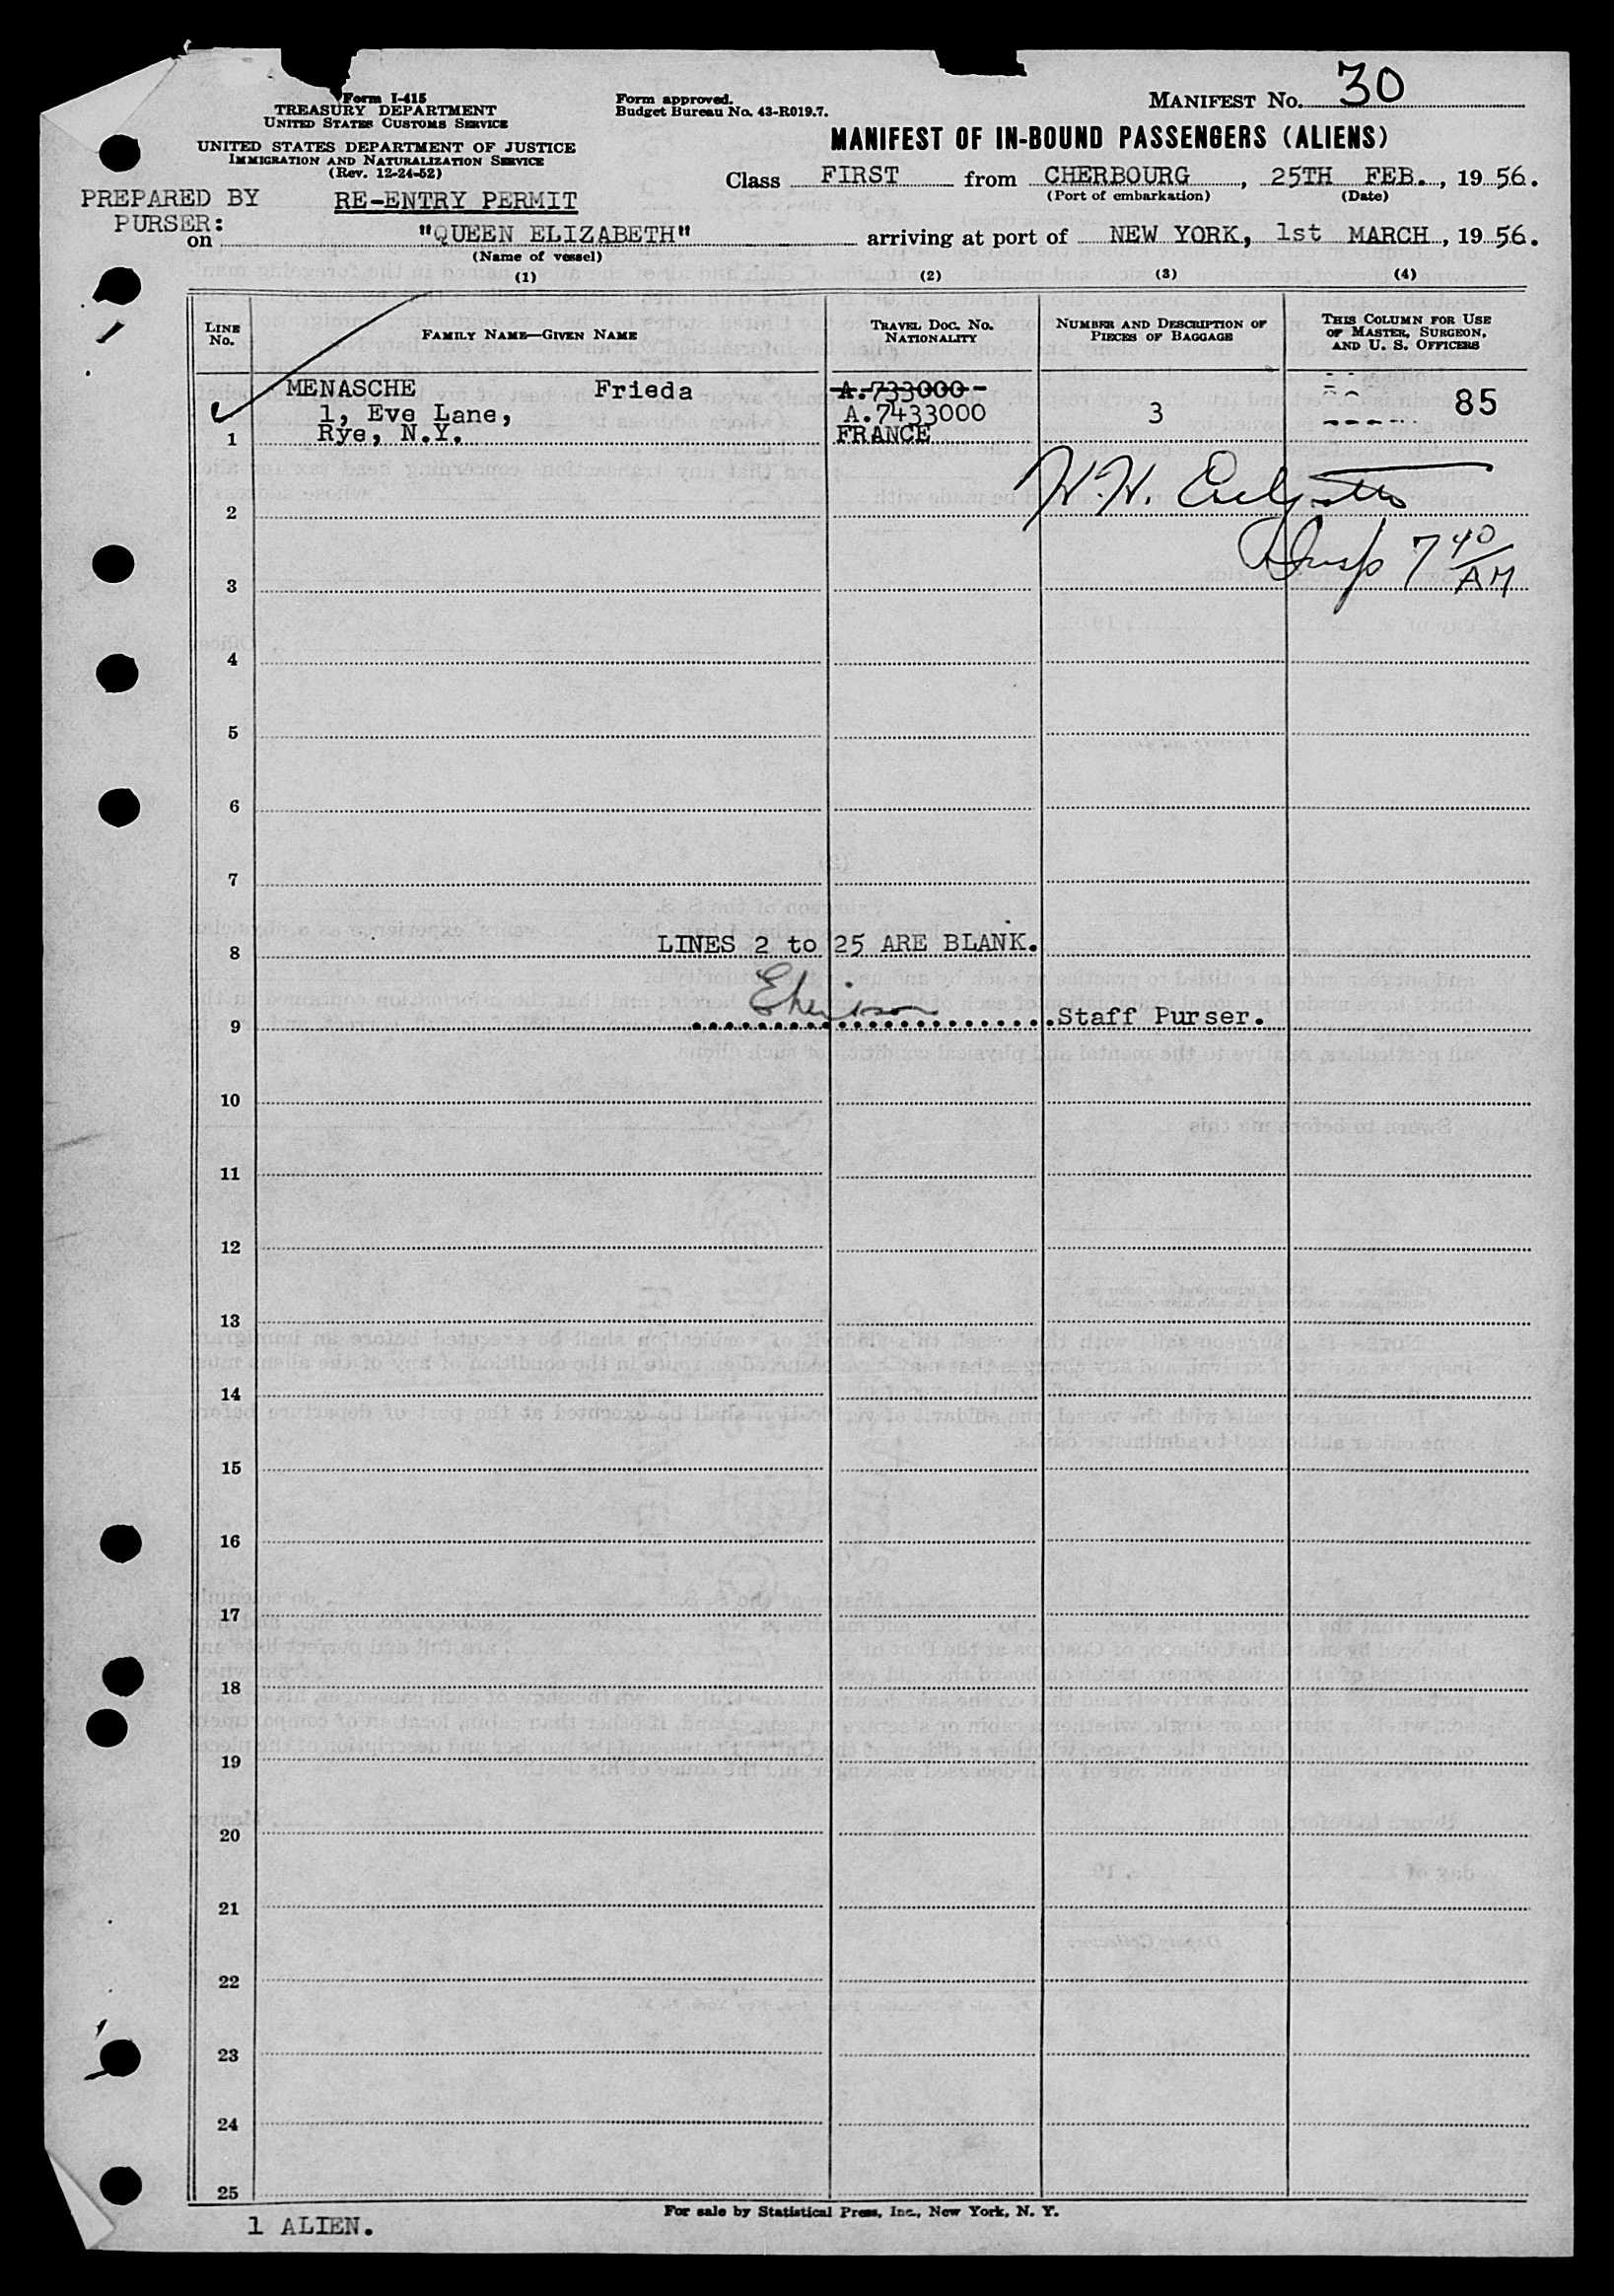 MANIFEST No. 30
Form I-415
TREASURY DEPARTMENT
UNITED STATES CUSTOMS SERVICE
UNITED STATES DEPARTMENT OF JUSTICE
IMMIGRATION AND NATURALIZATION SERVICE
(Rev. 12-24-52)
Form approved.
Budget Bureau No. 43-R019.7.
MANIFEST OF IN-BOUND PASSENGERS (ALIENS)
Class FIRST from CHERBOURG, 25TH FEB., 19 56.
(Port of embarkation) (Date)
PREPARED BY PURSER:
RE-ENTRY PERMIT
on "QUEEN ELIZABETH" arriving at port of NEW YORK, 1st MARCH, 19 56.
(Name of vessel)
(1) (2) (3) (4)
LINE No.
FAMILY NAME—GIVEN NAME
TRAVEL DOC. NO. NATIONALITY
NUMBER AND DESCRIPTION OF PIECES OF BAGGAGE
THIS COLUMN FOR USE OF MASTER, SURGEON, AND U. S. OFFICERS
MENASCHE Frieda A.733000
1, Eve Lane, A.7433000 3 85
1 Rye, N.Y. FRANCE
W.W.
2
Insp 7 40 AM
3
4
5
6
7
8 LINES 2 to 25 ARE BLANK.
9 Staff Purser.
10
11
12
13
14
15
16
17
18
19
20
21
22
23
24
25
For sale by Statistical Press, Inc., New York, N. Y.
1 ALIEN.